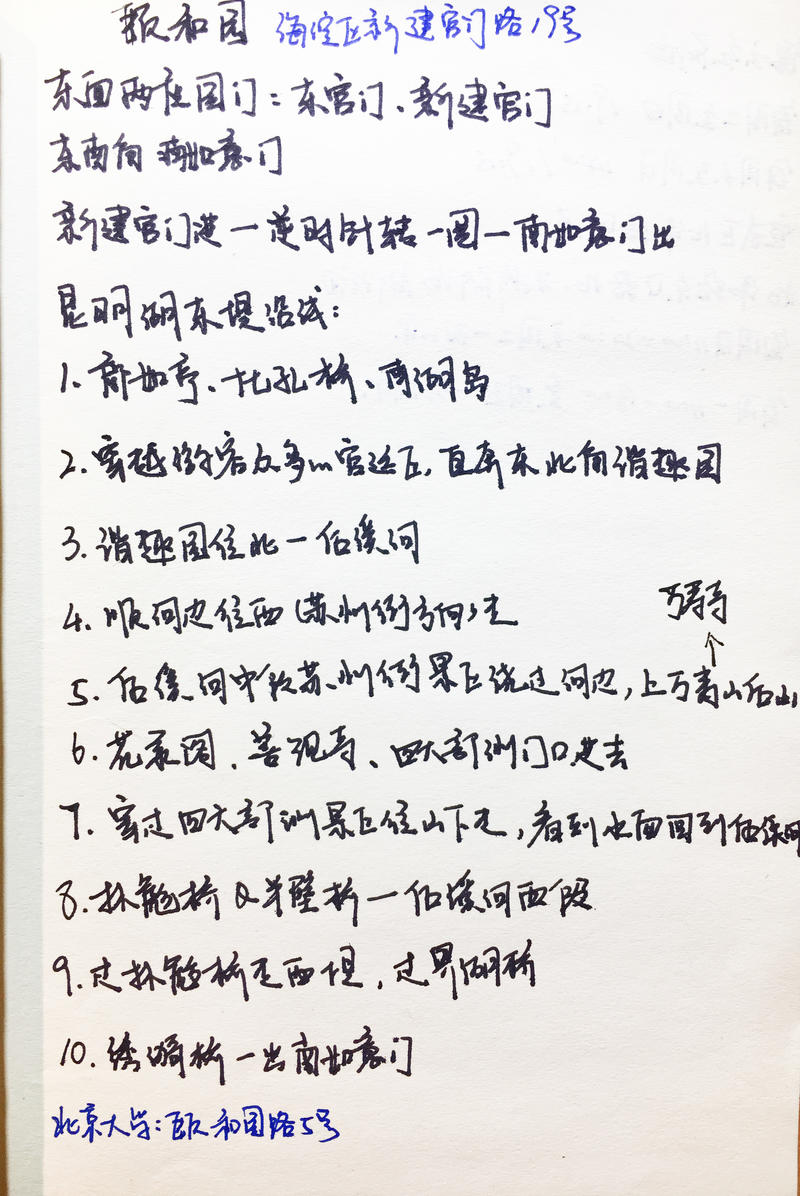 颐和园 海淀区新建宫门路19号
东面两座园门:东宫门、新建宫门
东南角 南如意门
新建宫门进一逆时针转一圈一南如意门出
昆明湖东堤沿线:
1. 廓如亭、十七孔桥、南湖岛
2. 穿越游客众多的宫廷区,直奔东北角谐趣园
3. 谐趣园往北一后溪河
4. 顺河边往西(苏州街方向)走
万寿寺
↑
5. 后溪河中段苏州街景区绕过河边,上万寿山后山
6. 花承阁、善现寺、四大部洲门口进去
7. 穿过四大部洲景区往山下走,看到水面回到后溪河
8. 桥&半壁桥一后溪河西段
9. 过 桥走西堤,过界湖桥
10. 绣漪桥一出南如意门
北京大学:颐和园路5号